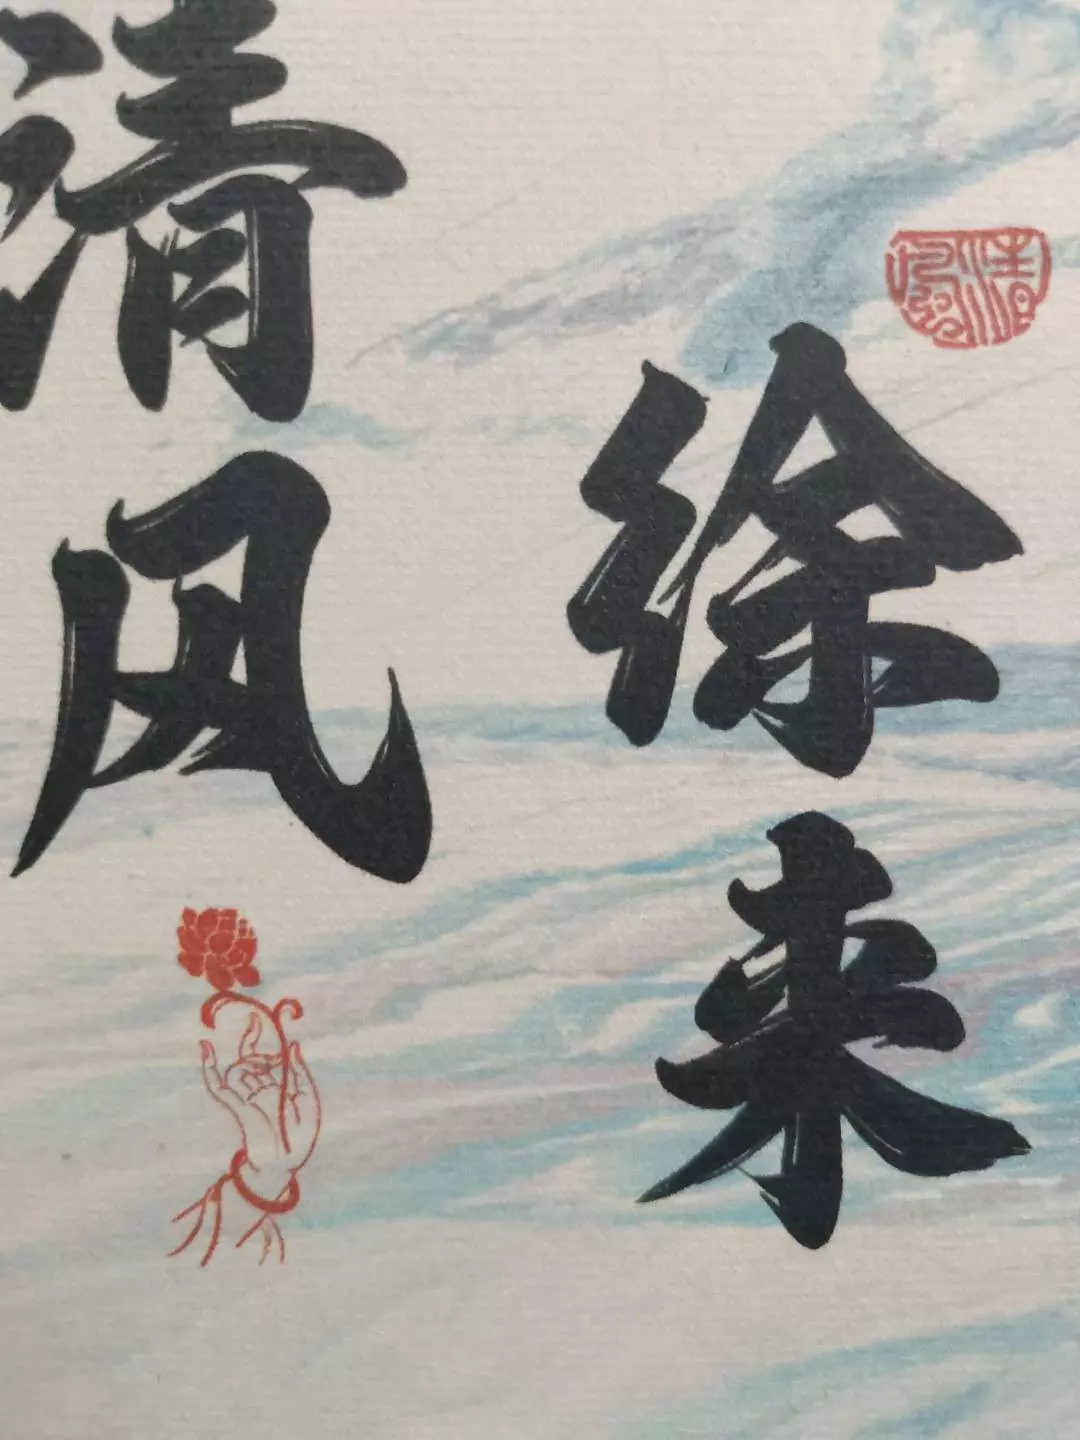 清风
徐来